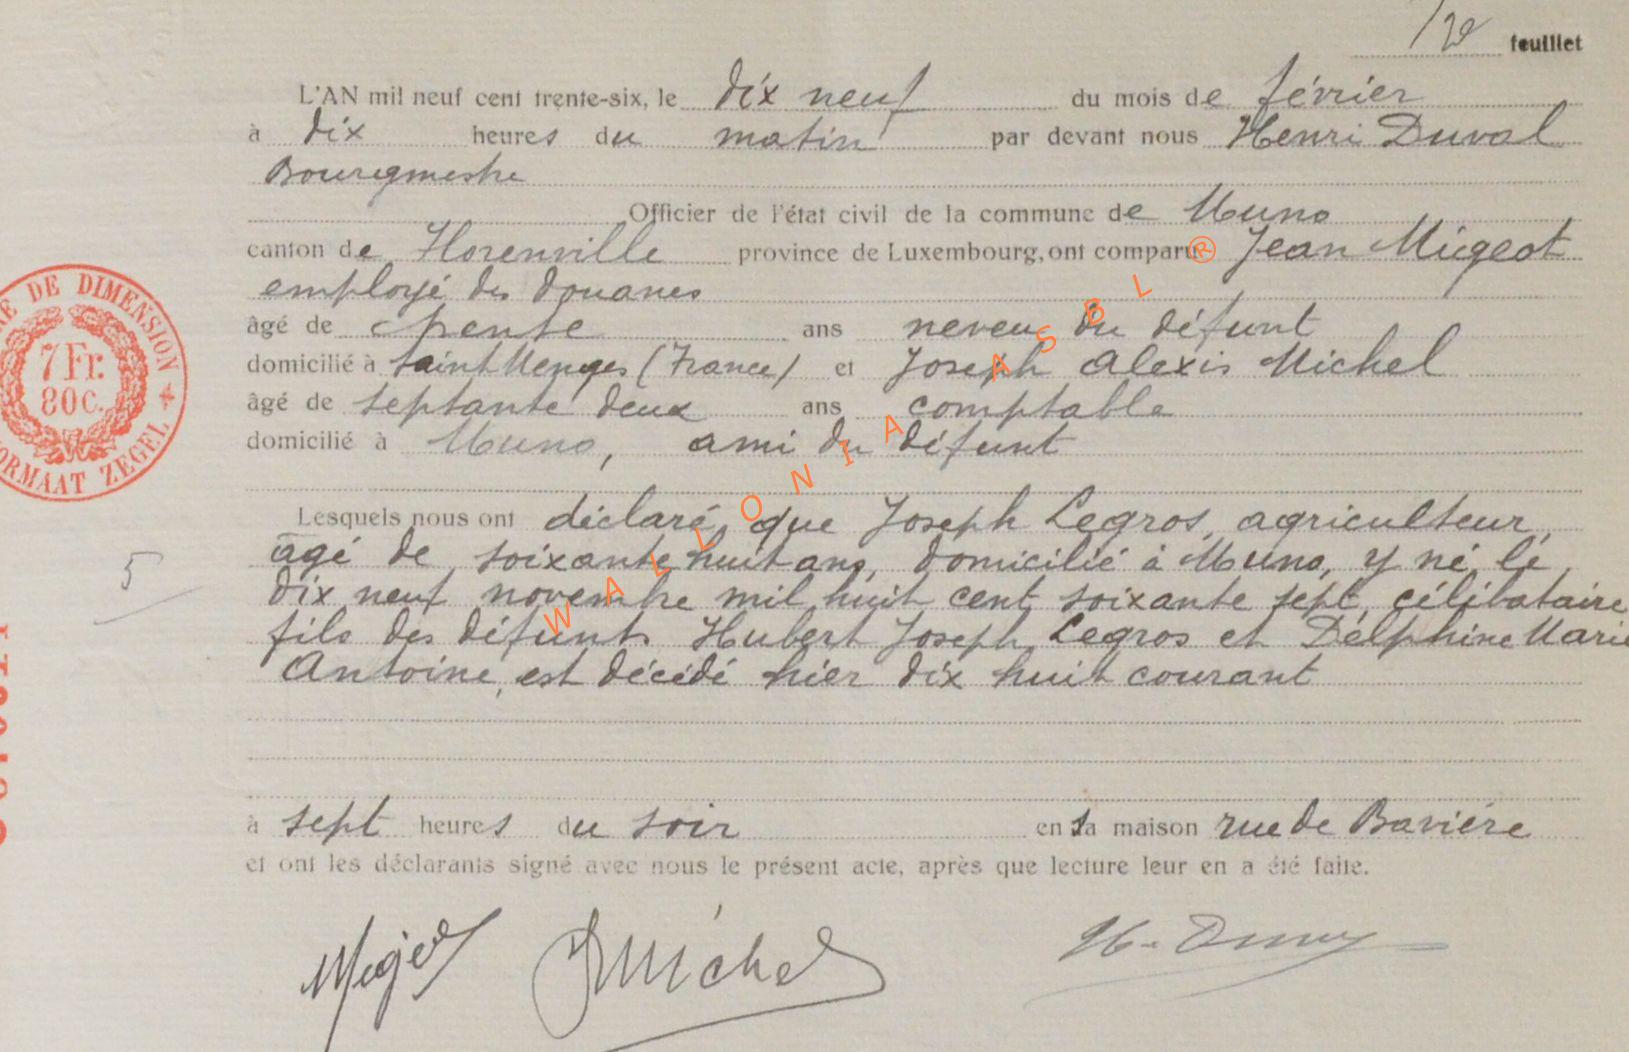 12e feuillet
L'AN mil neuf cent trente-six, le dix neuf du mois de février
à dix heures du matin par devant nous Henri Duval
Bourgmestre
Officier de l'état civil de la commune de Muno
canton de Florenville province de Luxembourg, ont comparu Jean Migeot
employé des douanes
âgé de trente ans neveu du défunt
domicilié à Saint Menges (France) et Joseph Alexis Michel
âgé de septante deux ans comptable
domicilié à Muno, ami du défunt
Lesquels nous ont déclaré que Joseph Legros, agriculteur,
agé de soixante huit ans, domicilié à Muno, y né le
dix neuf novembre mil huit cent soixante sept, célibataire
fils des défunts Hubert Joseph Legros et Delphine Marie
Antoine, est décédé hier dix huit courant
à sept heures du soir en sa maison rue de Baviére
et ont les déclarants signé avec nous le présent acte, après que lecture leur en a été faite.
Migeot JMichel H. Duval
5
DE DIMENSION
7 Fr.
80 C.
FORMAAT ZEGEL
WALLONIA ASBL ®